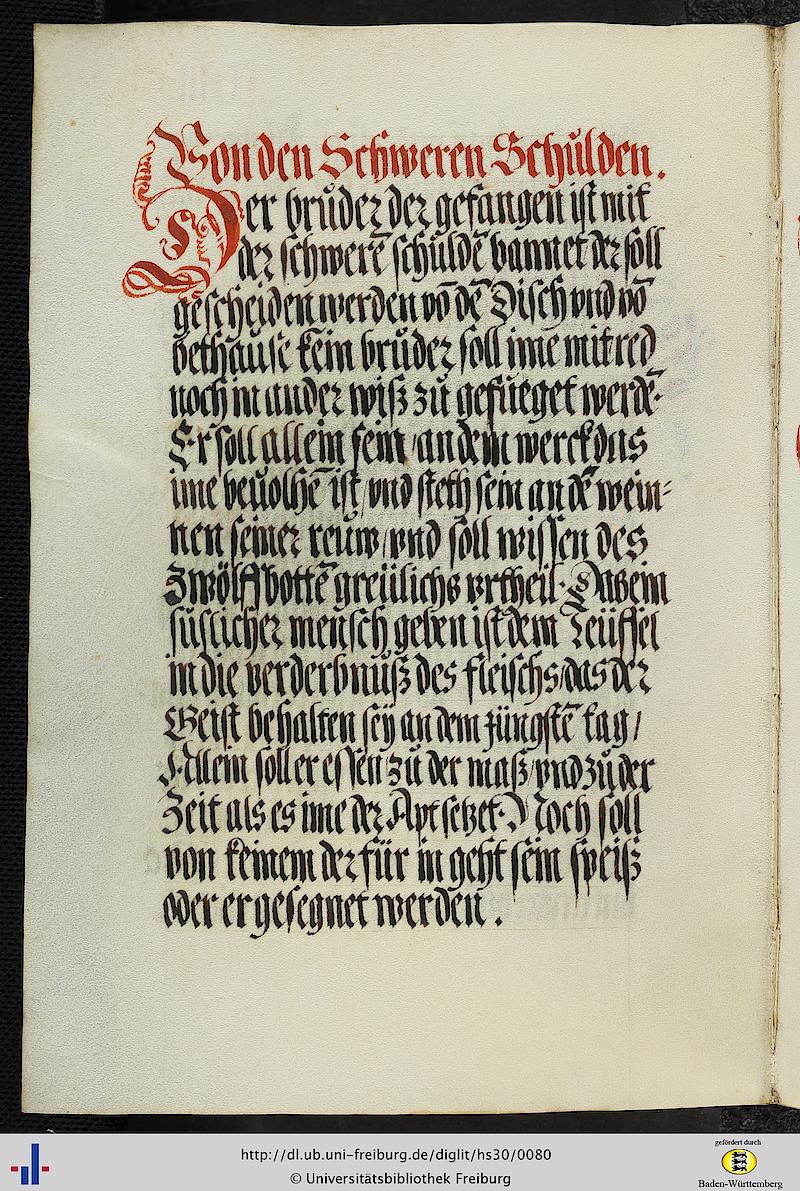 Von den Schweren Schůlden.
Der brůder der gefangen ist mit
der schwerē schůldē bannet der soll
gescheiden werden vō dē Disch vnd vō
bethause kein brůder soll ime mit red
noch in ander wisz zů gefüeget werdē·
Er soll allein sein / an dem werck das
ime beuolhē ist / vnd steth sein an dē wein-
nen seiner reuw / vnd soll wissen des
Zwölffbottē greülichs vrtheil· Das ein
sùslicher mensch geben ist dem Teüffel
in die verderbnůsz des fleischs / das der
Geist behalten seÿ an dem jüngstē tag /
Allein soll er essen zů der masz / vnd zůder
Zeit als es ime der Apt setzet· Noch soll
von keinem der für in geht sein speisz
oder er gesegnet werden .
http://dl.ub.uni-freiburg.de/diglit/hs30/0080
© Universitätsbibliothek Freiburg
gefördert durch
Baden-Württemberg